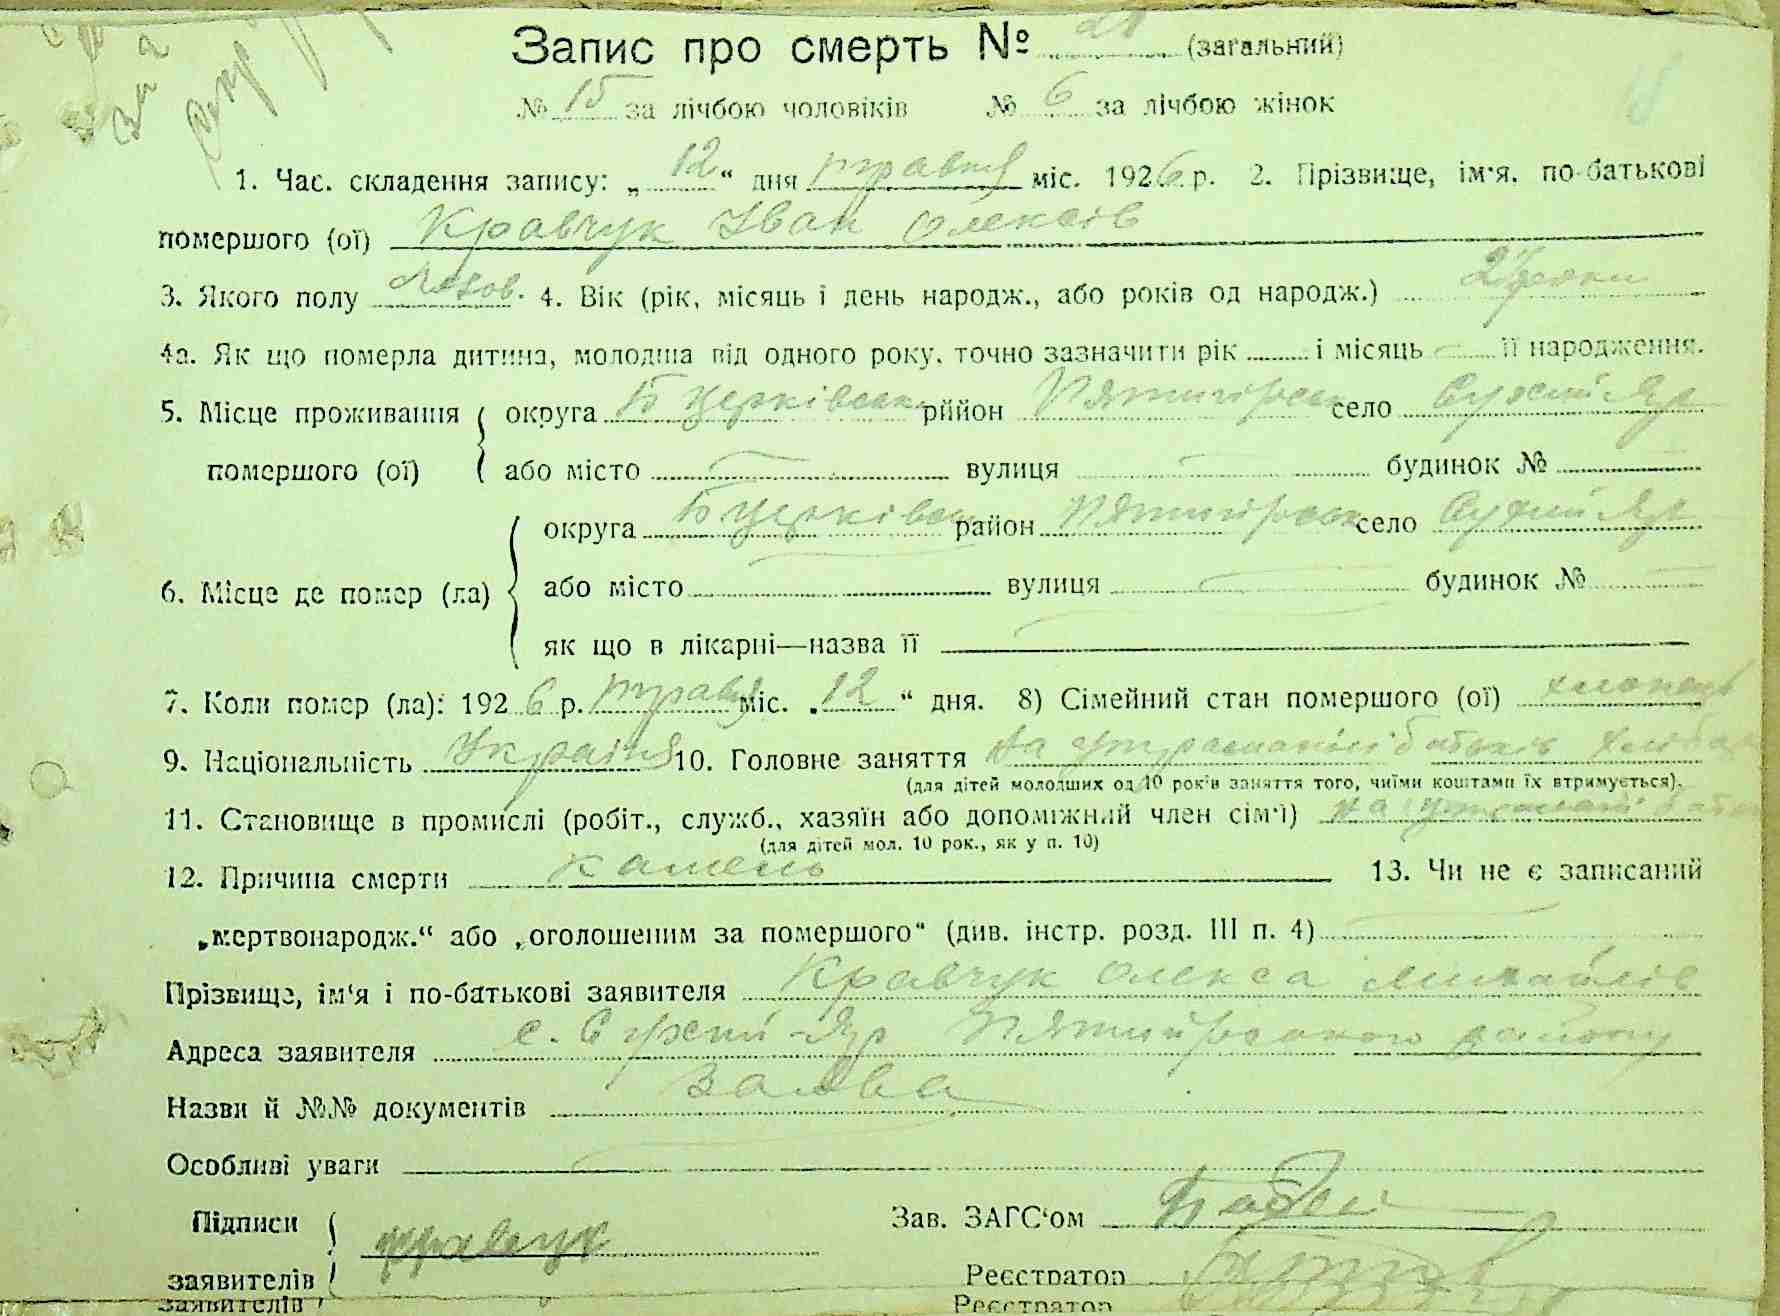 Запис про смерть № 21 (загальний)
№ 15 за лічбою чоловіків № 6 за лічбою жінок
1. Час. складення запису: „12“ дня травня міс. 1926 р. 2. Прізвище, ім'я, по-батькові
помершого (ої) Кравчук Іван Олексів
3. Якого полу 4. Вік (рік, місяць і день народж., або років од народж.) роки
4а. Як що померла дитина, молодша від одного року, точно зазначити рік і місяць – її народження.
5. Місце проживання округа Б Церківська рийон Пятигірськ село Сухий Яр
помершого (ої) або місто — вулиця — будинок №
округа Б Церківськ район Пятигірськ село Сухий Яр
6. Місце де помер (ла) або місто — вулиця — будинок № —
як що в лікарні—назва її —
7. Коли помер (ла): 1926 р. травня міс. „12“ дня. 8) Сімейний стан помершого (ої) хлопець
9. Національність Україня 10. Головне заняття на утриманні батьків хлібор
(для дітей молодших од 10 рок'в заняття того, чиїми коштами їх втримується).
11. Становище в промислі (робіт., служб., хазяїн або допоміжний член сім'ї) на утриман батьк
(для дітей мол. 10 рок., як у п. 10)
12. Причина смерти кашель 13. Чи не є записаний
„мертвонародж.“ або „оголошеним за помершого“ (див. інстр. розд. III п. 4) —
Прізвище, ім'я і по-батькові заявителя Кравчук Олекса Михайлів
Адреса заявителя с. Сухий-Яр Пятигірського району
Назви й №№ документів заява
Особливі уваги —
Підписи Кравчук Зав. ЗАГС'ом
заявителів Реєстратор
заявителів Реєстратор